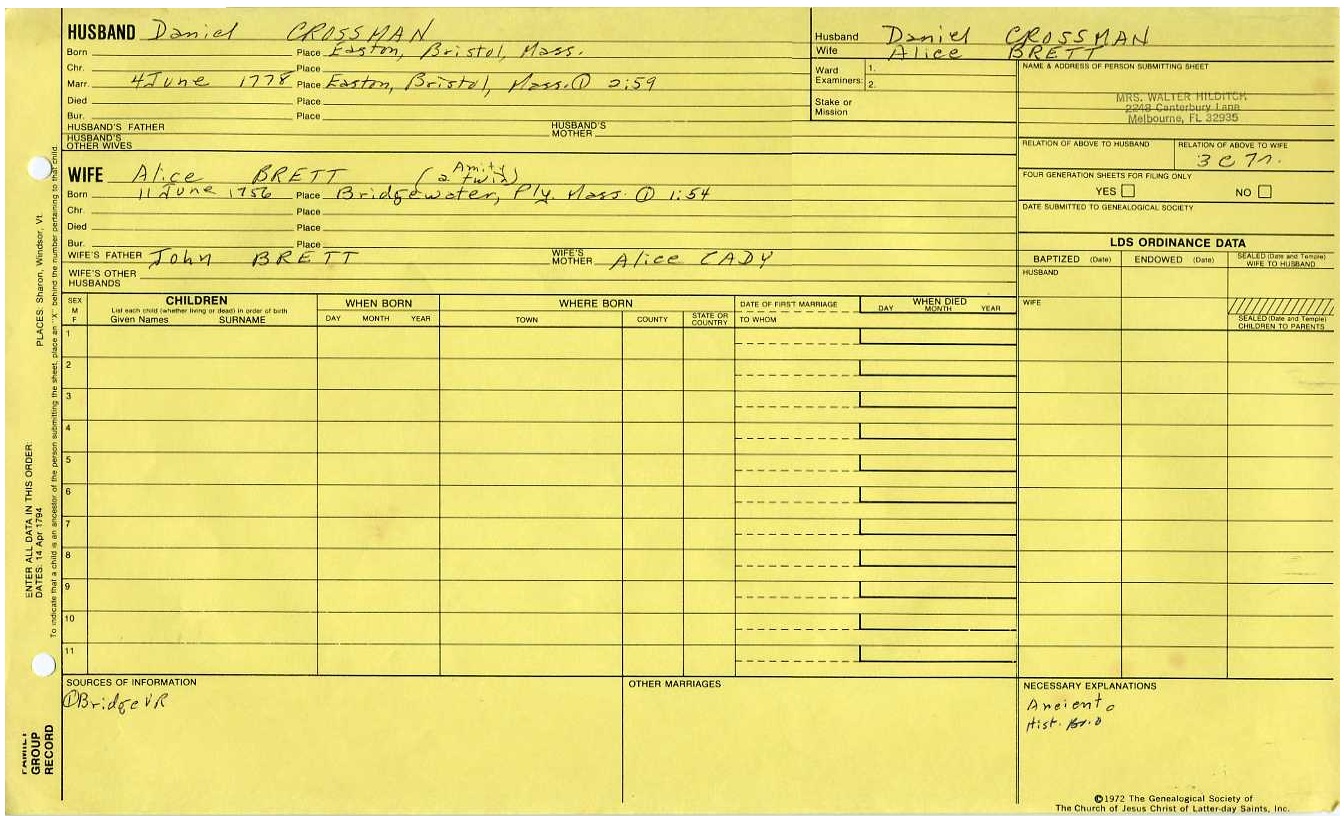 HUSBAND Daniel CROSSMAN
Born Place Easton, Bristol, Mass.
Chr. Place
Marr. 4 June 1778 Place Easton, Bristol, Mass. ① 2:59
Died Place
Bur. Place
HUSBAND'S FATHER HUSBAND'S MOTHER
HUSBAND'S OTHER WIVES
Husband Daniel CROSSMAN
Wife Alice BRETT
Ward Examiners: 1.
2.
Stake or Mission
NAME & ADDRESS OF PERSON SUBMITTING SHEET
MRS. WALTER HILDITCH
2248 Canterbury Lane
Melbourne, FL 32935
RELATION OF ABOVE TO HUSBAND RELATION OF ABOVE TO WIFE
FOUR GENERATION SHEETS FOR FILING ONLY
YES NO
DATE SUBMITTED TO GENEALOGICAL SOCIETY
WIFE Alice BRETT (Amity a twin)
Born 11 June 1756 Place Bridgewater, Ply. Mass. ① 1:54
Chr. Place
Died Place
Bur. Place
WIFE'S FATHER John BRETT WIFE'S MOTHER Alice CADY
WIFE'S OTHER HUSBANDS
LDS ORDINANCE DATA
BAPTIZED (Date) ENDOWED (Date) SEALED (Date and Temple) WIFE TO HUSBAND
HUSBAND
WIFE
SEALED (Date and Temple) CHILDREN TO PARENTS
SEX M F
CHILDREN
List each child (whether living or dead) in order of birth
Given Names SURNAME
WHEN BORN
DAY MONTH YEAR
WHERE BORN
TOWN COUNTY STATE OR COUNTRY
DATE OF FIRST MARRIAGE
TO WHOM
WHEN DIED
DAY MONTH YEAR
1
2
3
4
5
6
7
8
9
10
11
SOURCES OF INFORMATION
①Bridge VR
OTHER MARRIAGES
NECESSARY EXPLANATIONS
Hist.
©1972 The Genealogical Society of
The Church of Jesus Christ of Latter-day Saints, Inc.
ENTER ALL DATA IN THIS ORDER:
DATES: 14 Apr 1794 PLACES: Sharon, Windsor, Vt.
To indicate that a child is an ancestor of the person submitting the sheet, place an "X" behind the number pertaining to that child.
FAMILY GROUP RECORD